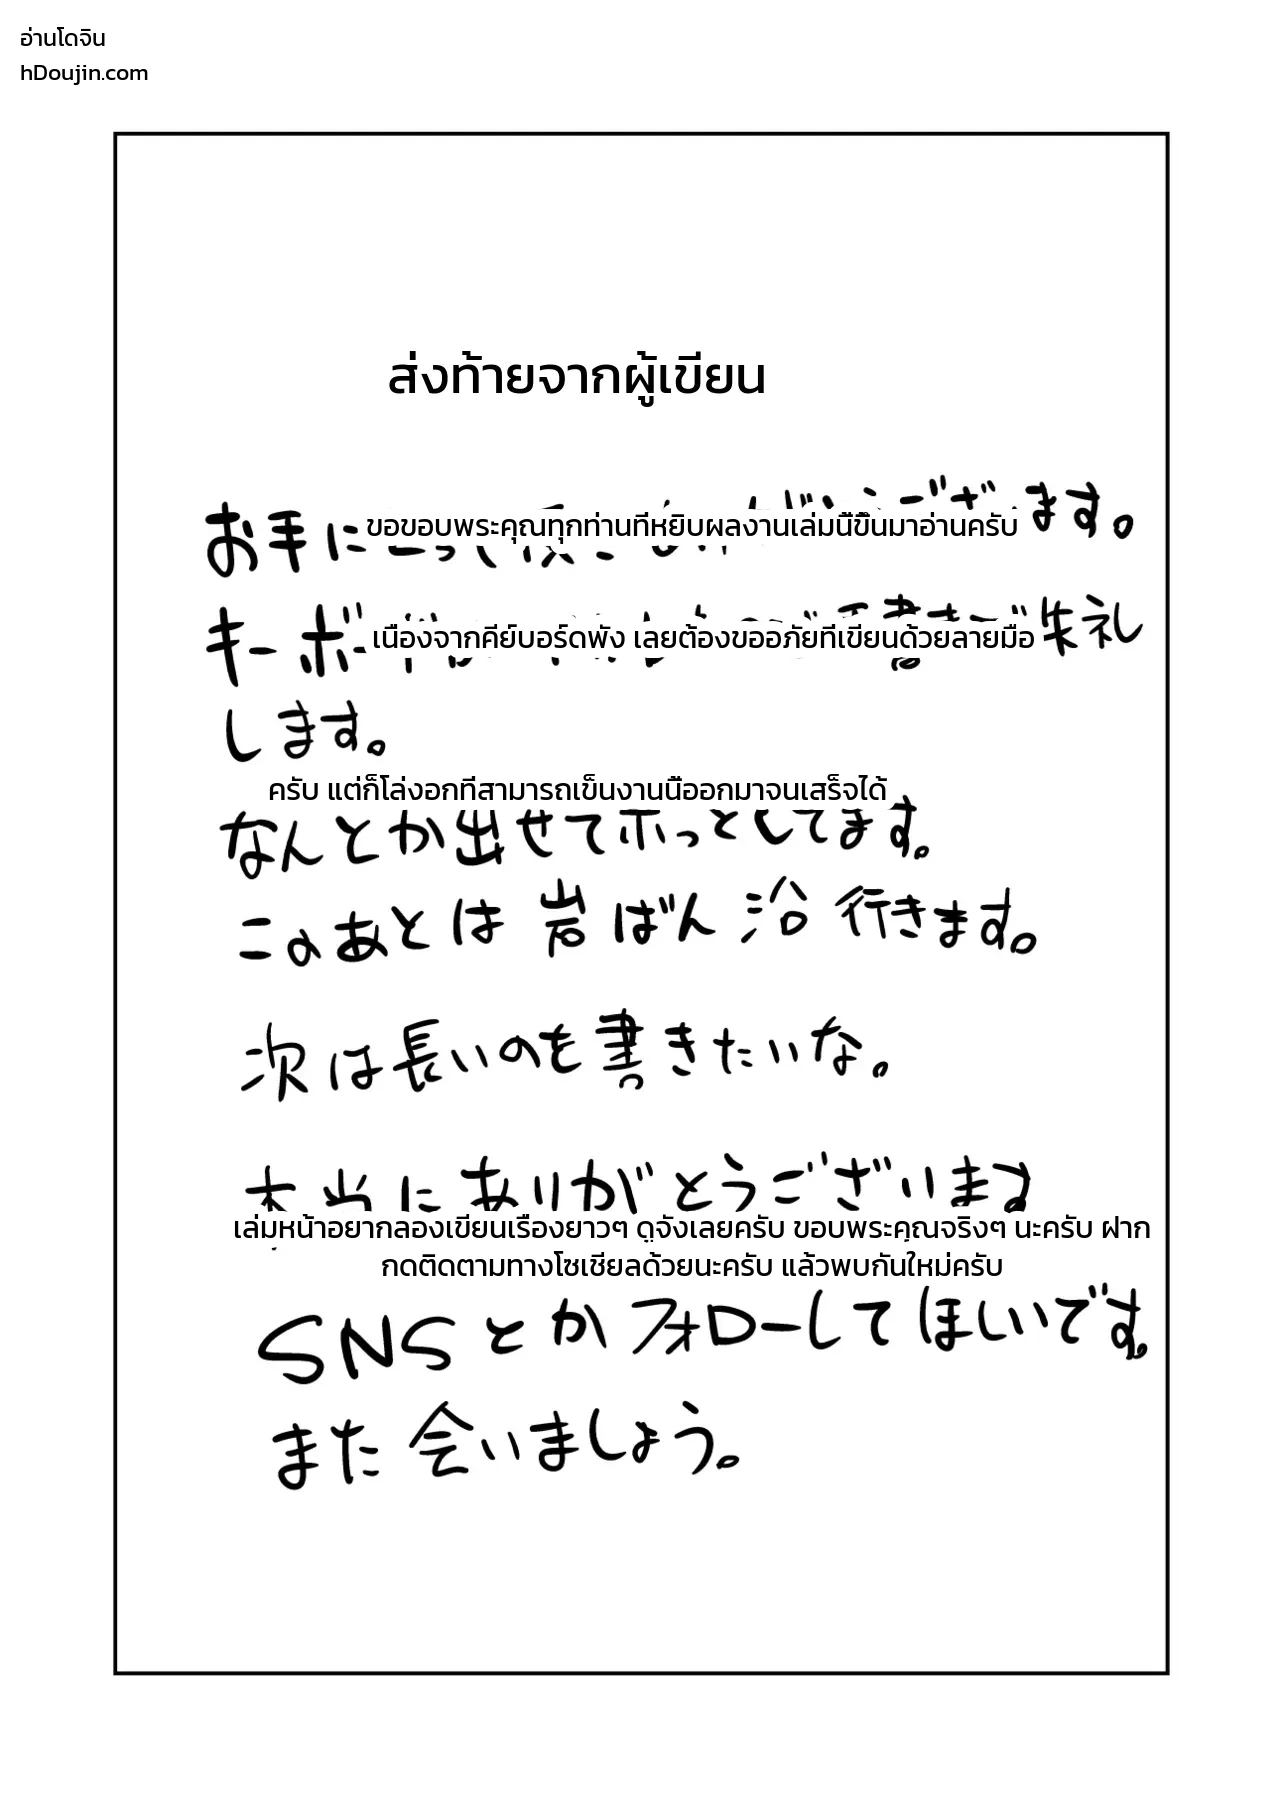 อ่านโดจิน
hDoujin.com
ส่งท้ายจากผู้เขียน
お手に ます。
ขอขอบพระคุณทุกท่านที่หยิบผลงานเล่มนี้ขึ้นมาอ่านครับ
キーボー 失礼
เนื่องจากคีย์บอร์ดพัง เลยต้องขออภัยที่เขียนด้วยลายมือ
します。
ครับ แต่ก็โล่งอกที่สามารถเข็นงานนี้ออกมาจนเสร็จได้
なんとか出せてホっとしてます。
このあとは岩ばん浴行きます。
次は長いのを書きたいな。
本当にありがとうございます
เล่มหน้าอยากลองเขียนเรื่องยาวๆ ดูจังเลยครับ ขอบพระคุณจริงๆ นะครับ ฝาก
กดติดตามทางโซเชียลด้วยนะครับ แล้วพบกันใหม่ครับ
SNSとかフォローしてほしいです。
また会いましょう。